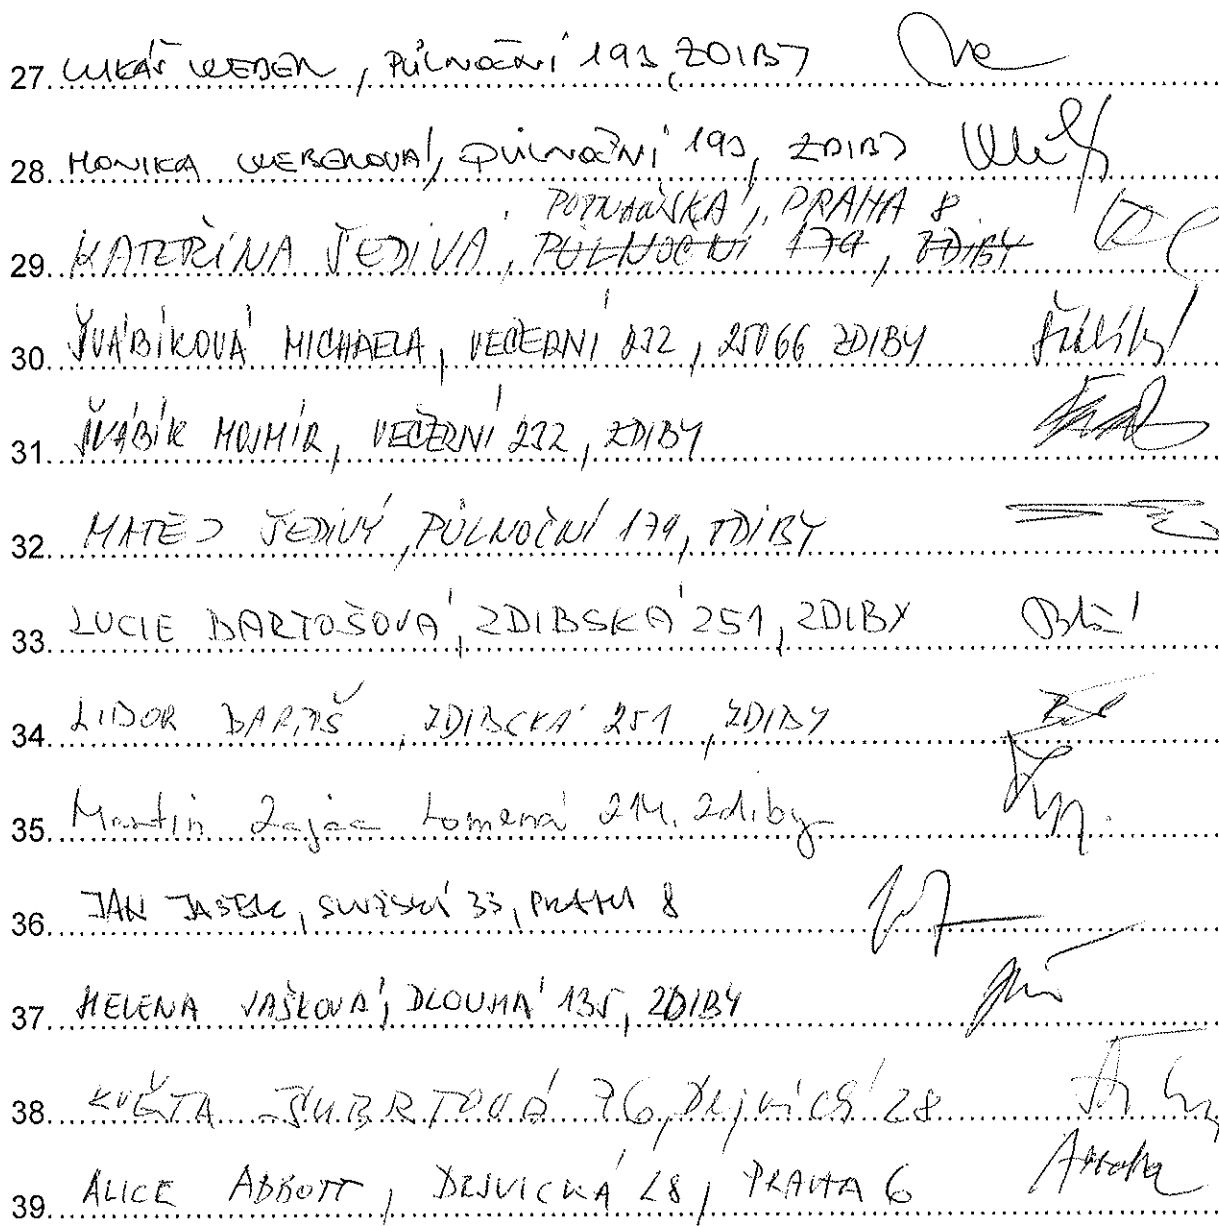 27 LUKÁŠ WEBER, PŮLNOČNÍ 193, ZDIBY
28 MONIKA WEBEROVÁ, PŮLNOČNÍ 193, ZDIBY
POZNAŇSKÁ, PRAHA 8
29 KATEŘINA ŠEDIVÁ, PŮLNOČNÍ 179, ZDIBY
30 ŠVÁBÍKOVÁ MICHAELA, VEČERNÍ 232, 25066 ZDIBY
31 ŠVÁBÍK MOJMÍR, VEČERNÍ 232, ZDIBY
32 MATĚJ ŠEDIVÝ, PŮLNOČNÍ 179, ZDIBY
33 LUCIE BARTOŠOVÁ, ZDIBSKÁ 251, ZDIBY
34 LIBOR BARTOŠ, ZDIBSKÁ 251, ZDIBY
35 Martin Zajac Lomená 214, Zdiby
36 JAN 33, PRAHA 8
37 HELENA VAŠKOVÁ, DLOUHÁ 135, ZDIBY
38 KVĚTA ŠUBRTOVÁ P6, Dejvická 28
39 ALICE ABBOTT, DEJVICKÁ 28, PRAHA 6